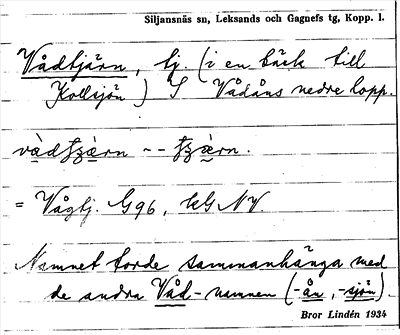 Siljansnäs sn, Leksands och Gagnefs tg, Kopp. l.
Vådtjärn, tj. (i en bäck till
Kollsjön) S Vådåns nedre lopp.
vàdtʒæ̀rn -- tʒæ̀rn.
= Vågtj. G96, kG NV.
Namnet torde sammanhänga med
de andra Våd-namnen (-ån, -sjön).
Bror Lindén 1934